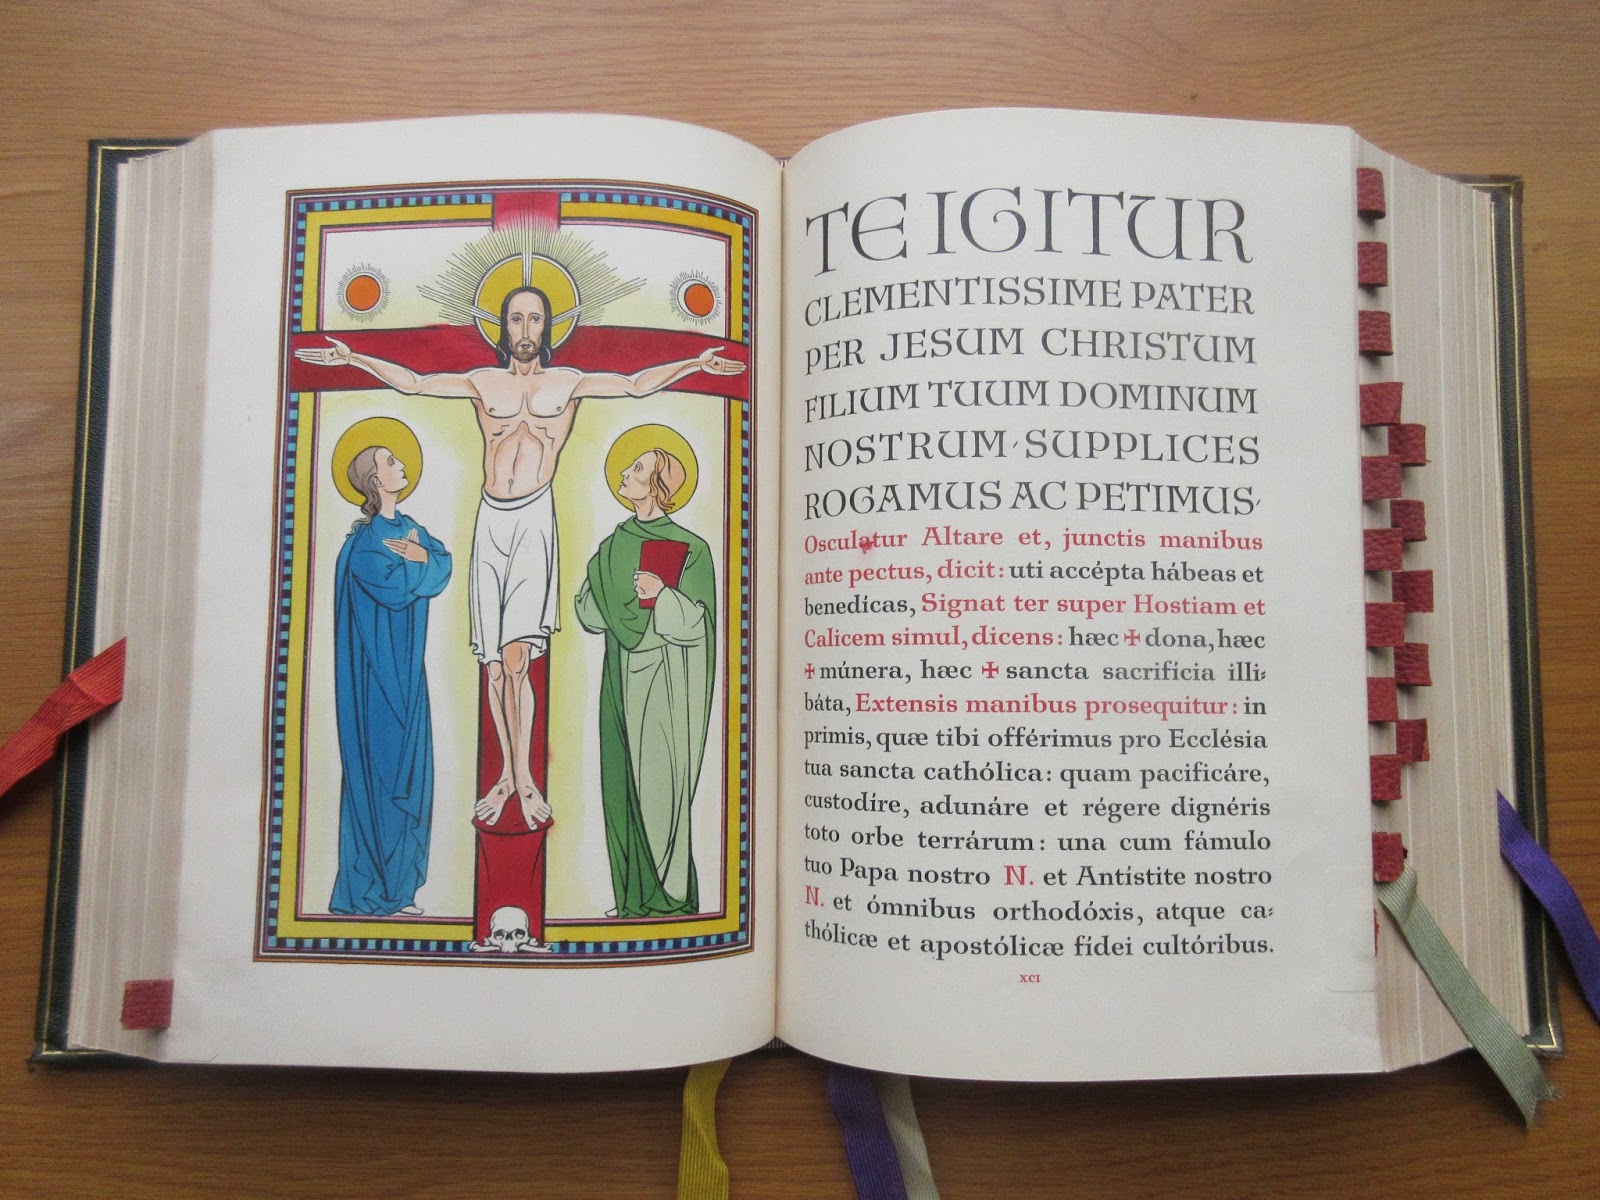 TE IGITUR
CLEMENTISSIME PATER
PER JESUM CHRISTUM
FILIUM TUUM DOMINUM
NOSTRUM, SUPPLICES
ROGAMUS AC PETIMUS,
Osculatur Altare et, junctis manibus
ante pectus, dicit: uti accépta hábeas et
benedícas, Signat ter super Hostiam et
Calicem simul, dicens: hæc ✠ dona, hæc
✠ múnera, hæc ✠ sancta sacrifícia illi=
báta, Extensis manibus prosequitur: in
primis, quæ tibi offérimus pro Ecclésia
tua sancta cathólica: quam pacificáre,
custodíre, adunáre et régere dignéris
toto orbe terrárum: una cum fámulo
tuo Papa nostro N. et Antístite nostro
N. et ómnibus orthodóxis, atque ca=
thólicæ et apostólicæ fídei cultóribus.
XCI